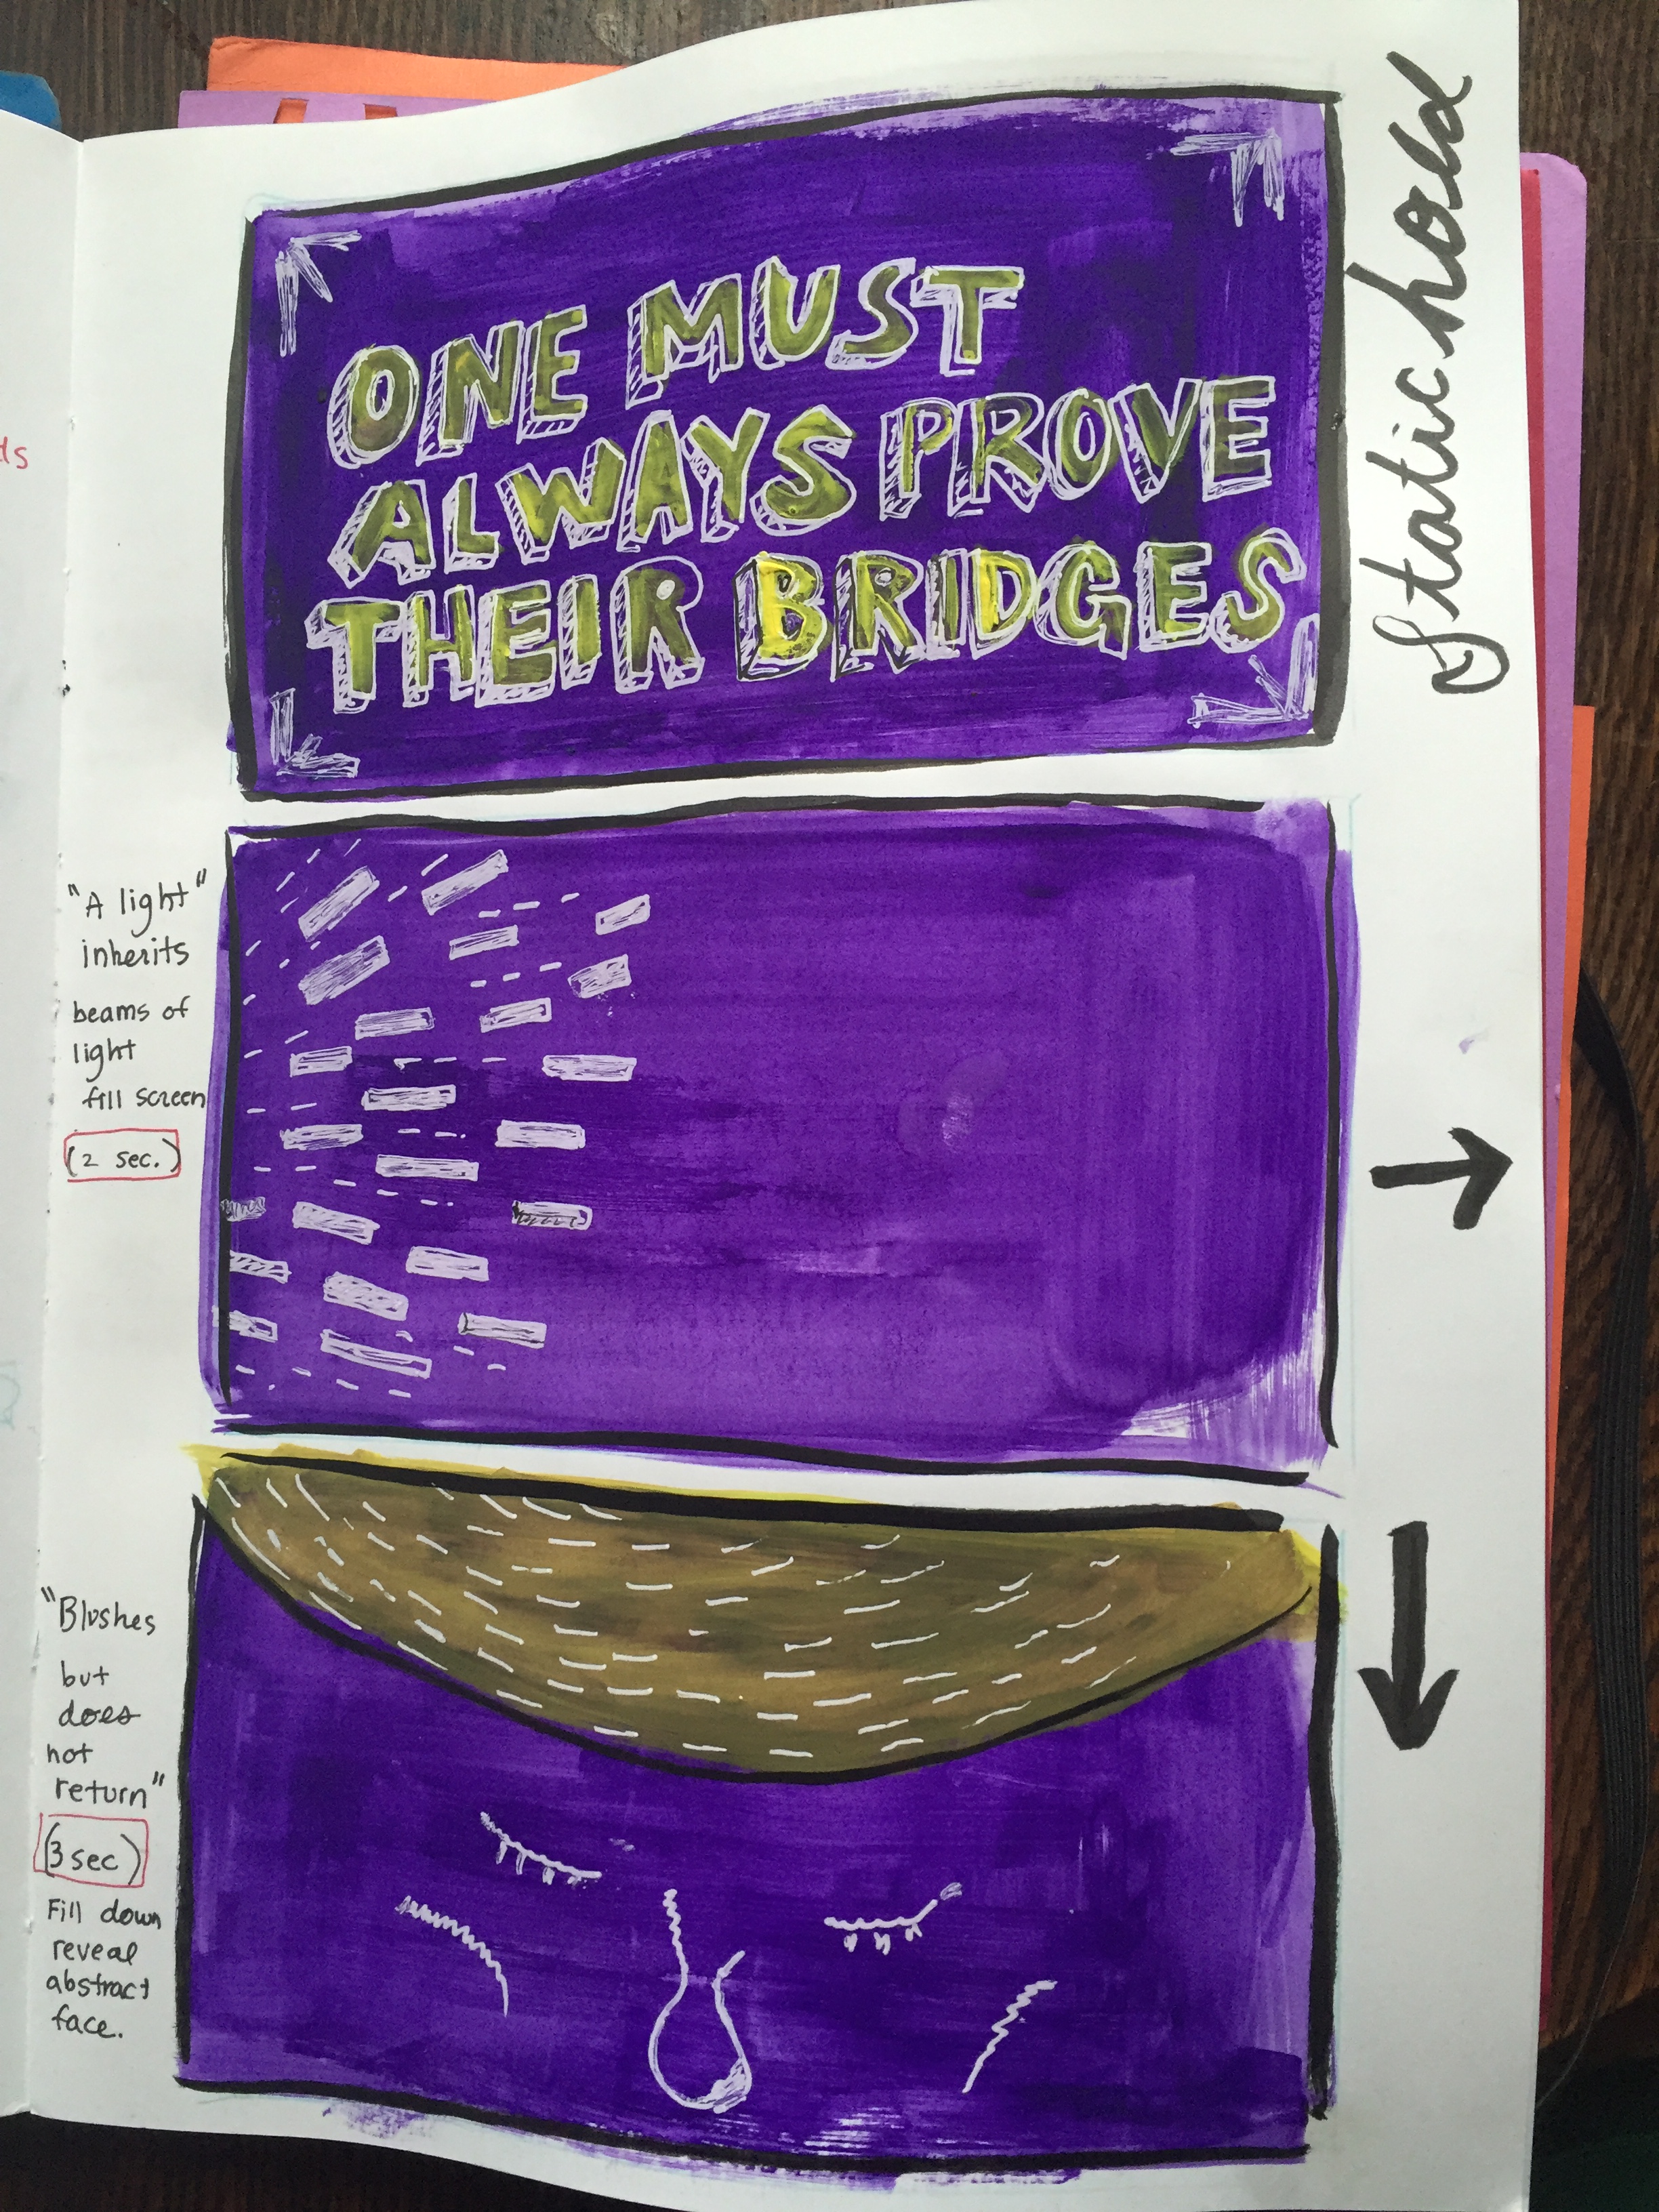 ds
Static hold
ONE MUST
ALWAYS PROVE
THEIR BRIDGES
"A light"
inherits
beams of
light
fill screen
(2 sec.)
"Blushes
but
does
not
return"
(3 sec)
Fill down
reveal
abstract
face.